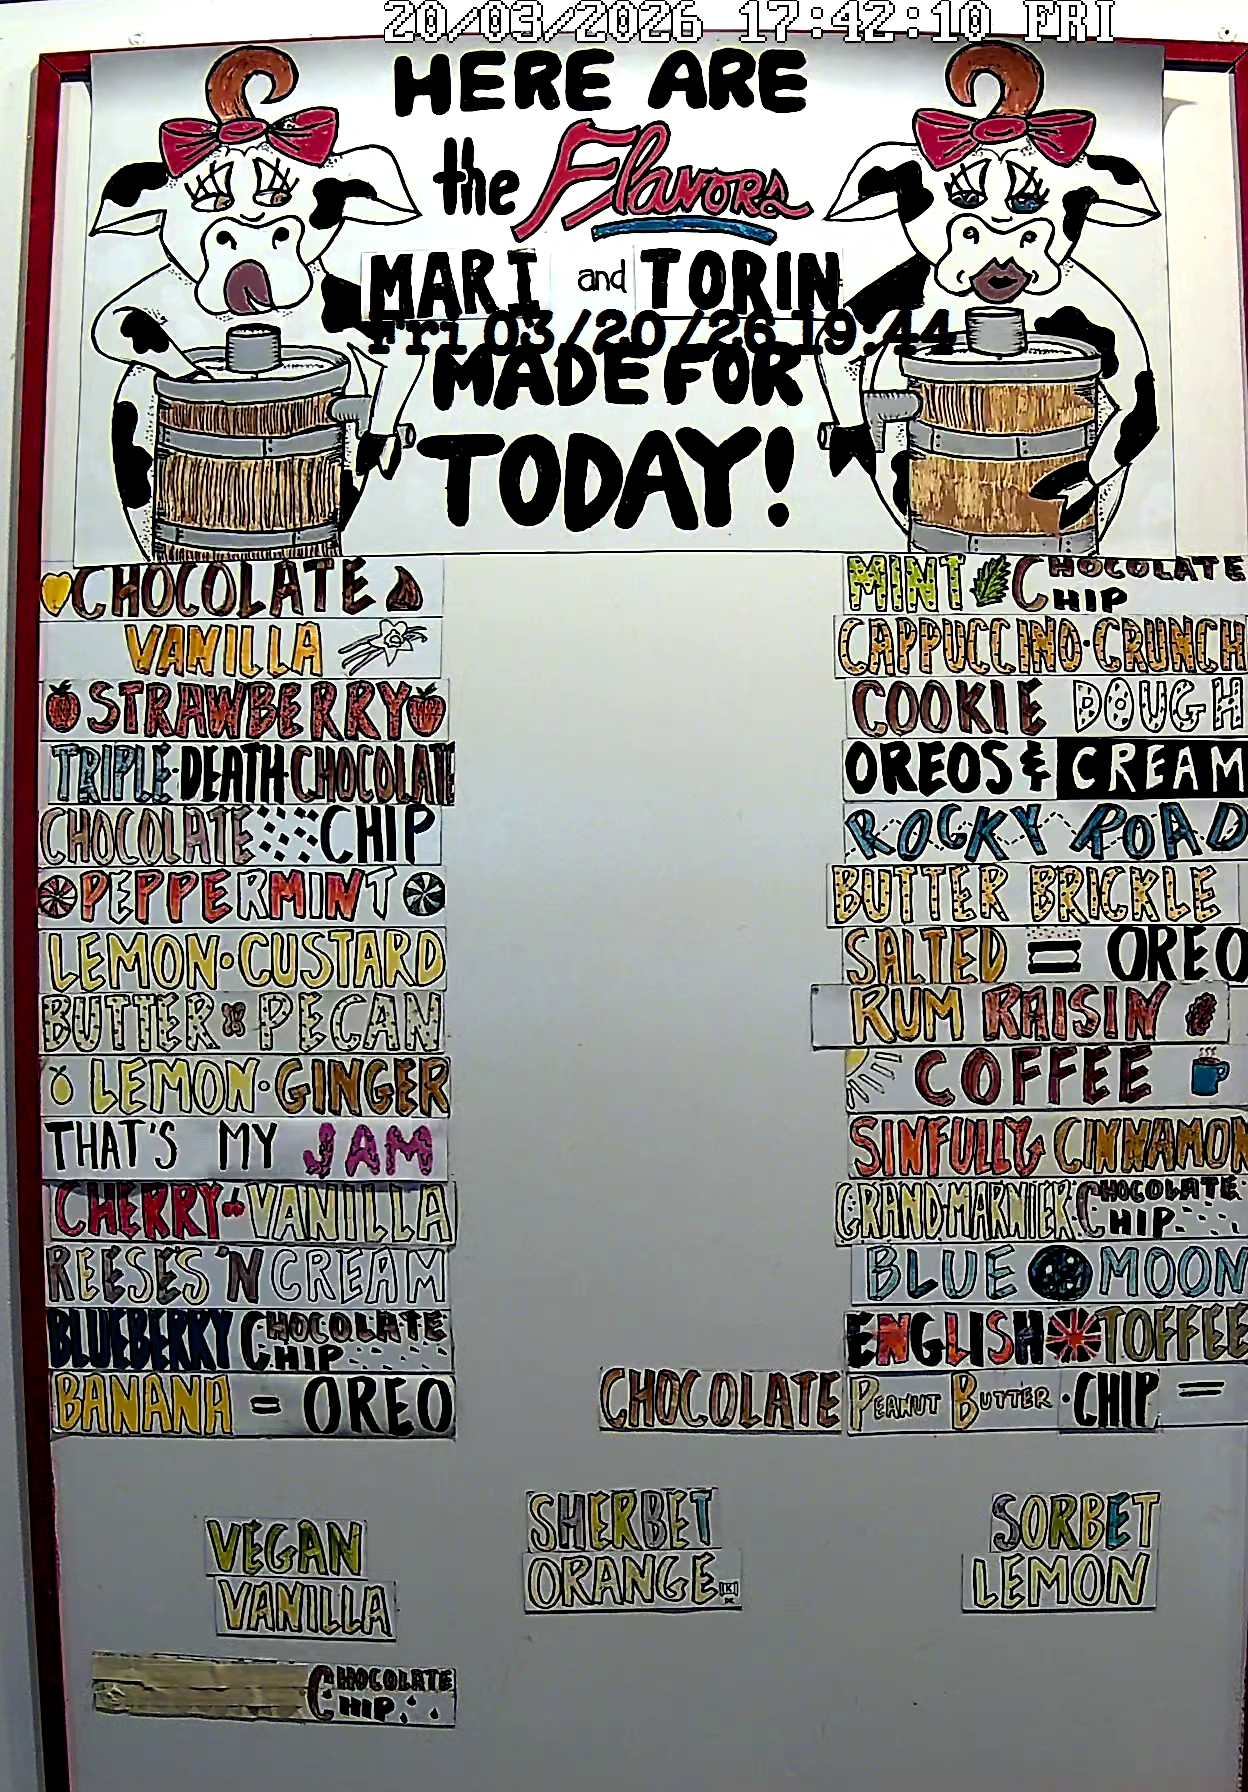 20/03/2026 17:42:10 FRI
HERE ARE
the Flavors
MARI and TORIN
Fri 03/20/26 19:44
MADE FOR
TODAY!
CHOCOLATE
VANILLA
STRAWBERRY
TRIPLE·DEATH·CHOCOLATE
CHOCOLATE CHIP
PEPPERMINT
LEMON·CUSTARD
BUTTER PECAN
LEMON·GINGER
THAT'S MY JAM
CHERRY VANILLA
REESE'S 'N CREAM
BLUEBERRY CHOCOLATE CHIP
BANANA = OREO
MINT CHOCOLATE CHIP
CAPPUCCINO·CRUNCH
COOKIE DOUGH
OREOS & CREAM
ROCKY ROAD
BUTTER BRICKLE
SALTED = OREO
RUM RAISIN
COFFEE
SINFULLY CINNAMON
GRAND·MARNIER·CHOCOLATE CHIP
BLUE MOON
ENGLISH TOFFEE
CHOCOLATE PEANUT BUTTER·CHIP =
VEGAN
VANILLA
CHOCOLATE CHIP
SHERBET
ORANGE
SORBET
LEMON